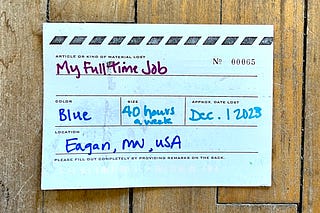 ARTICLE OR KIND OF MATERIAL LOST
My Full-time Job
Nº 00065
COLOR
Blue
SIZE
40 hours
a week
APPROX. DATE LOST
Dec. 1 2023
LOCATION
Eagan, MN, USA
PLEASE FILL OUT COMPLETELY BY PROVIDING REMARKS ON THE BACK.